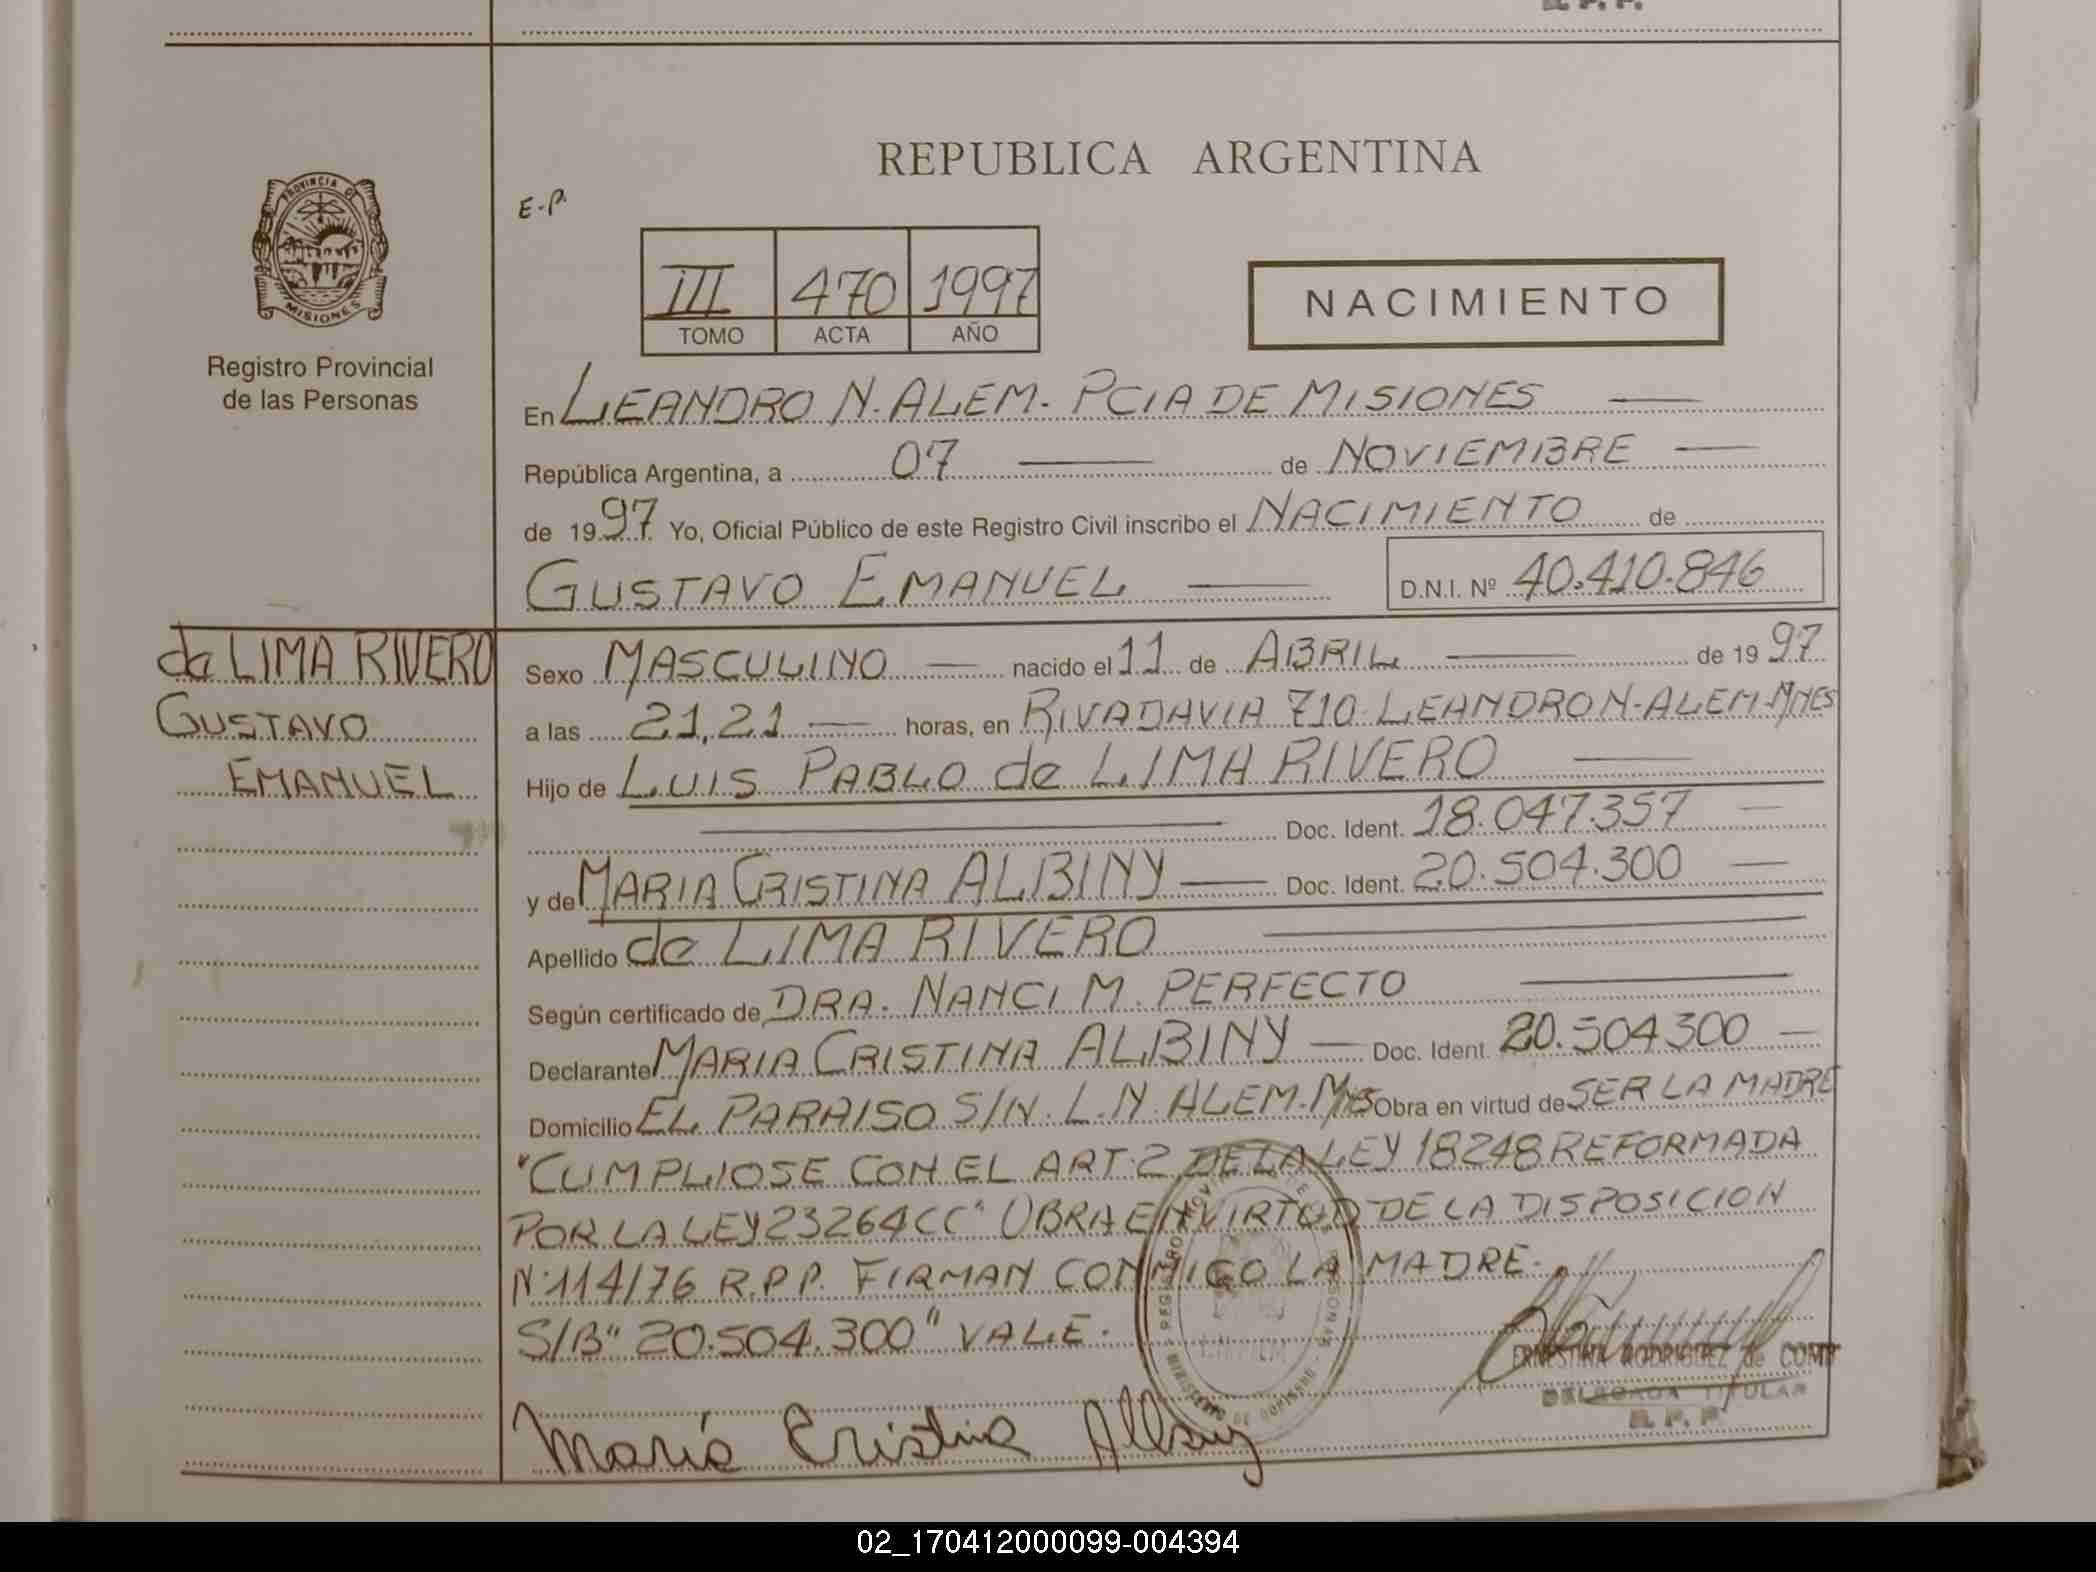 R. P. P.
REPUBLICA ARGENTINA
PROVINCIA DE
MISIONES
Registro Provincial
de las Personas
E-P.
III 470 1997
TOMO ACTA AÑO
NACIMIENTO
En LEANDRO N. ALEM. PCIA DE MISIONES
República Argentina, a 07 de NOVIEMBRE
de 1997 Yo, Oficial Público de este Registro Civil inscribo el NACIMIENTO de
GUSTAVO EMANUEL D.N.I. Nº 40.410.846
da LIMA RIVERO
GUSTAVO
EMANUEL
Sexo MASCULINO nacido el 11 de ABRIL de 1997
a las 21,21 horas, en RIVADAVIA 710. LEANDRO N. ALEM. MNES
Hijo de LUIS PABLO de LIMA RIVERO
Doc. Ident. 18.047.357
y de MARIA CRISTINA ALBINY Doc. Ident. 20.504.300
Apellido de LIMA RIVERO
Según certificado de DRA. NANCI M. PERFECTO
Declarante MARIA CRISTINA ALBINY Doc. Ident. 20.504300
Domicilio EL PARAISO S/N. L.N. ALEM. Mns Obra en virtud de SER LA MADRE
"CUMPLIOSE CON EL ART. 2 DE LA LEY 18248 REFORMADA
POR LA LEY 23264 CC" OBRA EN VIRTUD DE LA DISPOSICION
Nº 114/76 R.P.P. FIRMAN CONMIGO LA MADRE.
S/B "20.504.300" VALE.
ERNESTINA RODRIGUEZ de
DELEGADA TITULAR
R. P. P.
María Cristina Albiny
02_170412000099-004394